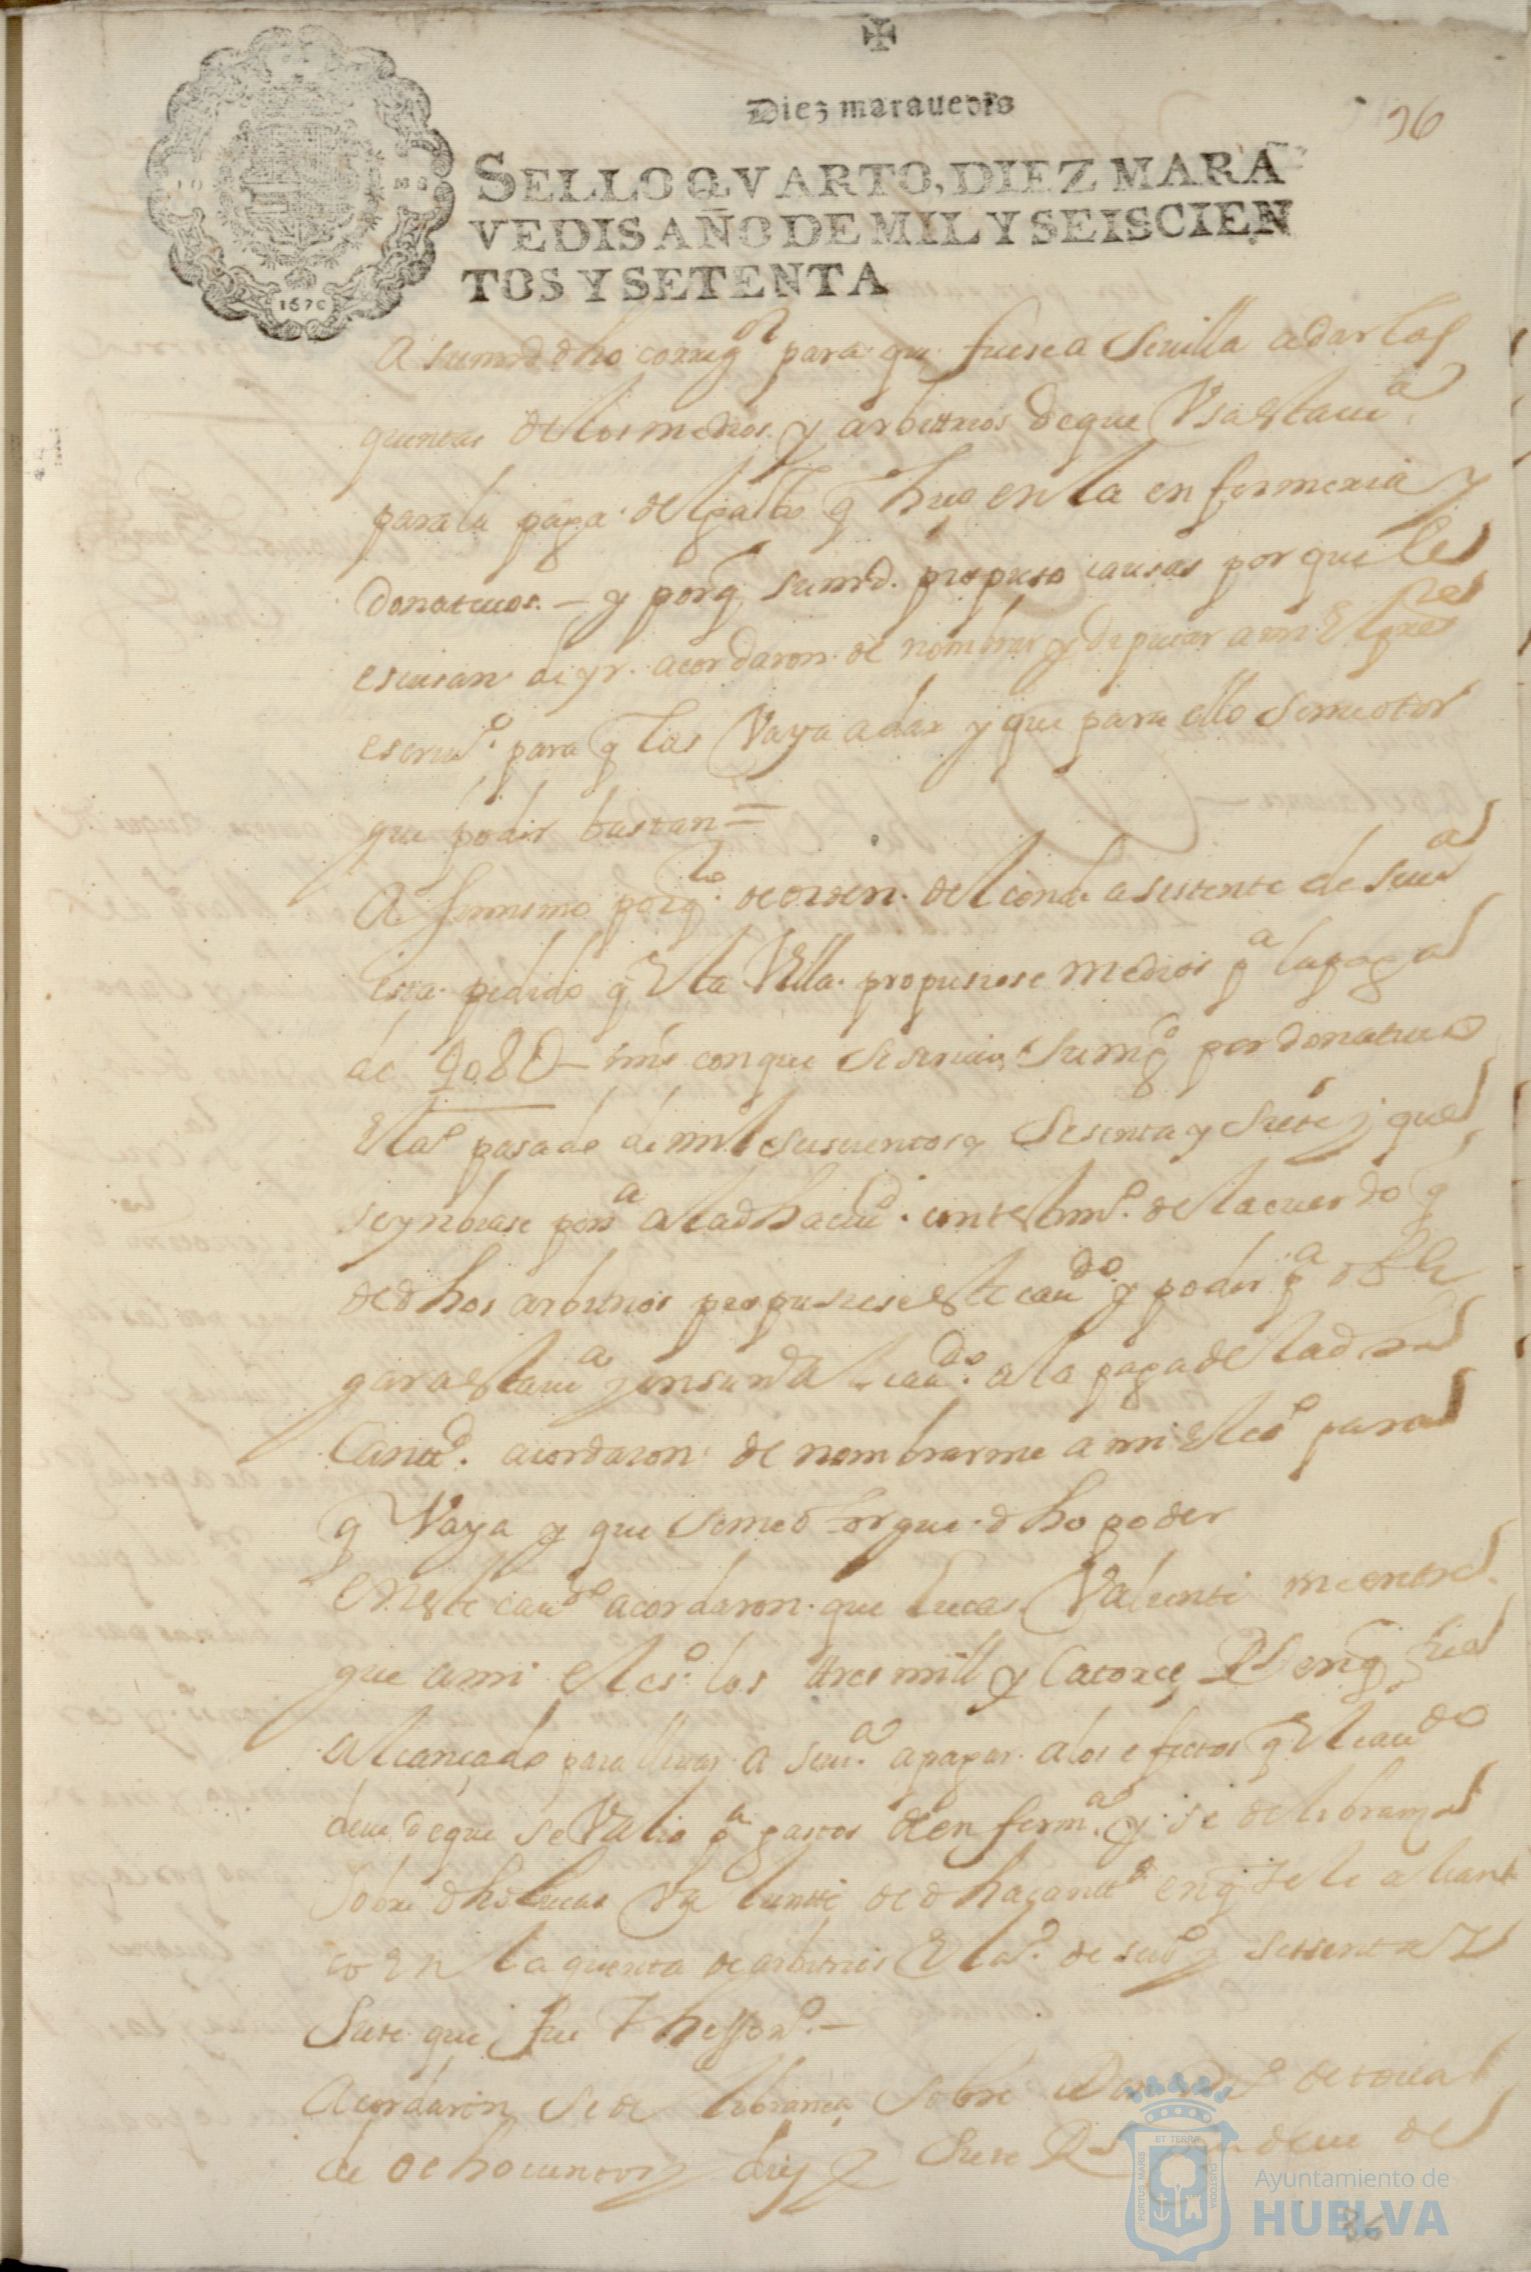 Diez maravedis
36
SELLO QVARTO, DIEZ MARA
VEDIS AÑO DE MIL Y SEISCIEN
TOS Y SETENTA
1670
A su md dho corregor para que fuese a Sevilla a dar las
quentas de los medios y arbittrios de que Usa esta ciud
para la paga del gasto q hizo en la enfermeria y
donativos – y porq su md. propuso causas por que le
escusan de yr. acordaron de nombrar y diputar a mi el pres
escriuo. para q las Vaya a dar y que para ello se me otor
gue poder bastan=
A simismo porqto de orden del conde asistente de seua
esta pedido q Esta Villa propusiese medios pa la paga
de mrs con que se siruio, su mgd por donatiuo
El ao pasado de mil seiscientos y sesenta y siete y que
se ynbiase persa a la dha ciud. con testimo. del acuerdo q
de dhos arbitrios propusiese este caudo. y poder pa obli
gar a esta ua y en su nd al caudo. a la paga de la dha
Cantd. acordaron de nombrarme a mi el esno para
q Vaya y que se me otorgue dho poder
En este caudo acordaron que lucas Valiente me entre
gue a mi el eso. los tres mill y Catorce Rs en q fue
alcançado para lleuar a seua. a pagar a los efectos q El caudo
deue de que se Valio pa gastos de enferma. y se de libramza
sobre dho lucas Valiente de dha cantd en q se le alcan
co En la quenta de arbitrios El ao. de seiso y sesenta y
siete que fue Thessoro.–
Acordaron se de libranca sobre de toua
de ochocientos y diez y siete Rs deue de
PORTUS MARIS ET TERRA CUSTODIA
Ayuntamiento de
HUELVA
36